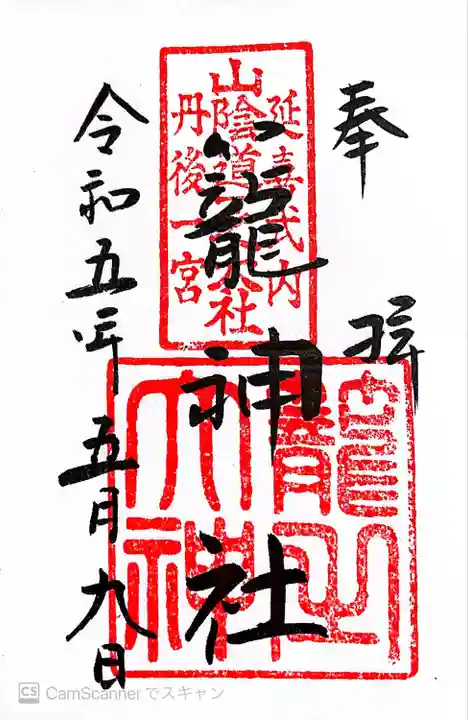 奉拝
延喜式内
山陰道一大社
丹後一宮
籠之大神
籠神社
令和五年五月九日
CS CamScannerでスキャン